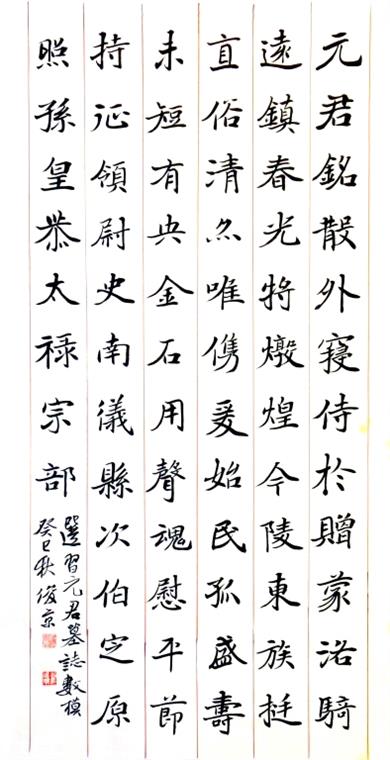 元君銘散外寑侍於贈蒙洛騎
遠鎮春光將燉煌今陵東族挺
直俗清尒唯儁爰始民孤盛壽
未短有央金石用聲魂慰平節
持征領尉史南儀縣次伯定原
照孫皇恭太祿宗部
選習元君墓誌數模
癸巳秋俊京